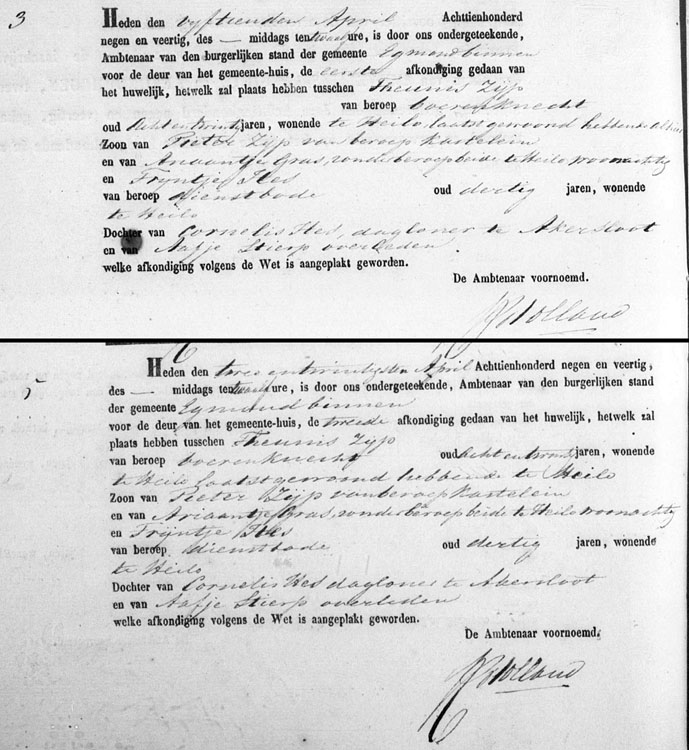 3
Heden den vyftienden April Achttienhonderd
negen en veertig, des — middags ten twaalf ure, is door ons ondergeteekende,
Ambtenaar van den burgerlijken stand der gemeente Egmondbinnen
voor de deur van het gemeente-huis, de eerste afkondiging gedaan van
het huwelijk, hetwelk zal plaats hebben tusschen Theunis Zyp
van beroep boerenknecht
oud acht en twintig jaren, wonende te Heilo laatst gewoond hebbende
Zoon van Pieter Zyp van beroep Kastelein
en van Ariaantje Gras, zonder beroep beide te Heilo woonachtig
en Tryntje Hes
van beroep dienstbode oud dertig jaren, wonende
te Heilo
Dochter van Cornelis Hes, daglooner te Akersloot
en van Aafje Stierp overleden
welke afkondiging volgens de Wet is aangeplakt geworden.
De Ambtenaar voornoemd.
Holland
5
Heden den twee en twintigsten April Achttienhonderd negen en veertig,
des — middags ten twaalf ure, is door ons ondergeteekende, Ambtenaar van den burgerlijken stand
der gemeente Egmondbinnen
voor de deur van het gemeente-huis, de tweede afkondiging gedaan van het huwelijk, hetwelk zal
plaats hebben tusschen Theunis Zyp
van beroep boerenknecht oud acht en twintig jaren, wonende
te Heilo laatst gewoond hebbende te Heilo
Zoon van Pieter Zyp van beroep Kastelein
en van Ariaantje Gras, zonder beroep beide te Heilo woonachtig
en Tryntje Hes
van beroep dienstbode oud dertig jaren, wonende
te Heilo
Dochter van Cornelis Hes daglooner te Akersloot
en van Aafje Stierp overleden
welke afkondiging volgens de Wet is aangeplakt geworden.
De Ambtenaar voornoemd.
Holland